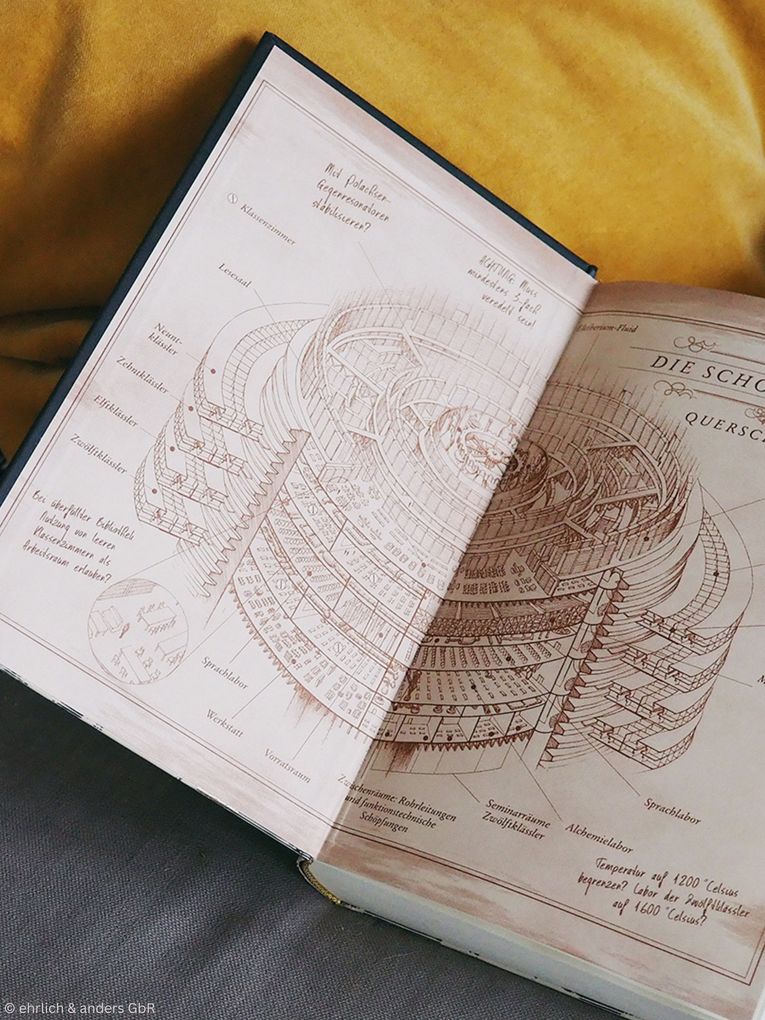 Mit Polachsen-
Gegenresonatoren
stabilisieren?
Klassenzimmer
ACHTUNG Muss
mindestens 5-fach
veredelt sein!
Lesesaal
Neunt-
klässler
Zehntklässler
Elftklässler
Zwölftklässler
Bei überfüllter Bibliothek
Nutzung von leeren
Klassenzimmern als
Arbeitsraum erlauben?
Sprachlabor
Werkstatt
Vorratsraum
-Fluid
DIE SCHO
QUERSC
Zwischenräume: Rohrleitungen
und funktionstechnische
Schöpfungen
Seminarräume
Zwölftklässler
Alchemielabor
Sprachlabor
Temperatur auf 1200 °Celsius
begrenzen? Labor der Zwölftklässler
auf 1600 °Celsius?
© ehrlich & anders GbR